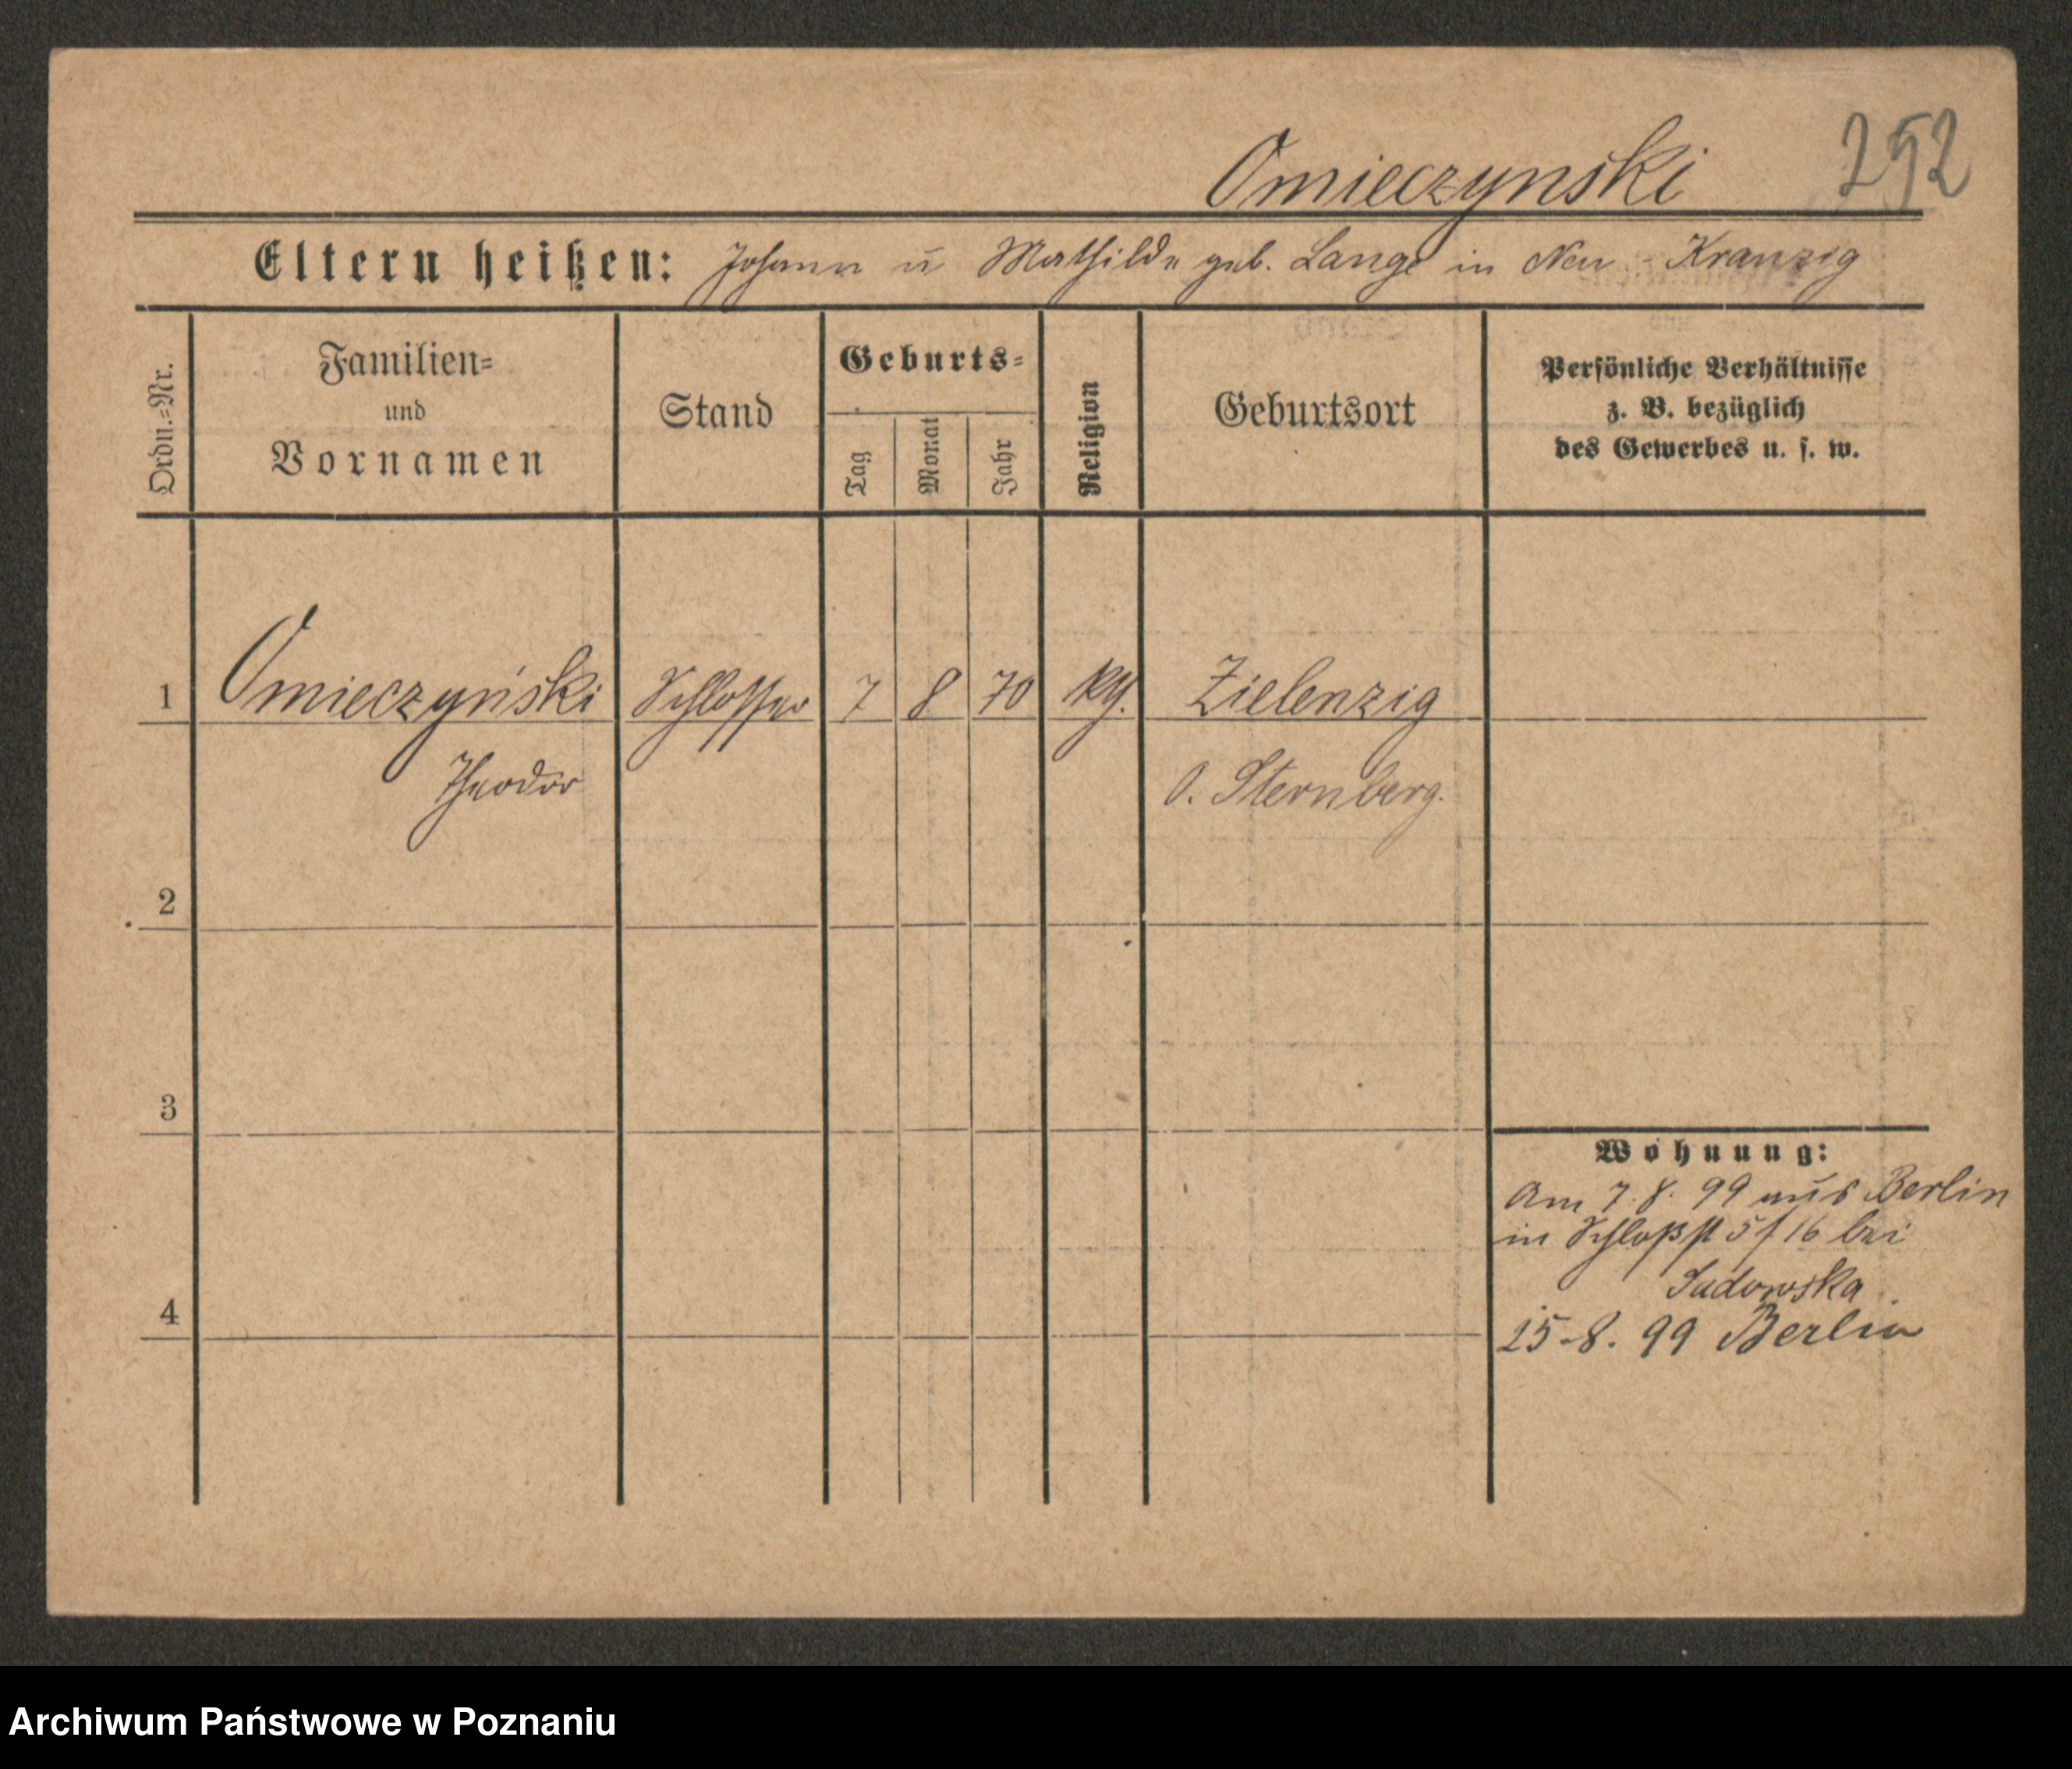 Omieczynski 252
Eltern heißen: Johann u Mathilde geb. Lange in Neu-Kranzig
Ordn.=Nr.
Familien=
und
Vornamen
Stand
Geburts=
Tag
Monat
Jahr
Religion
Geburtsort
Persönliche Verhältnisse
z. B. bezüglich
des Gewerbes u. s. w.
1 Omieczyński Schlosser 7 8 70 Zielenzig
Theodor O. Sternberg.
2
3
Wohnung:
Am 7. 8. 99 aus Berlin
in Schloßst 5 f 16 bei
Sadowska
4
25-8. 99 Berlin
Archiwum Państwowe w Poznaniu